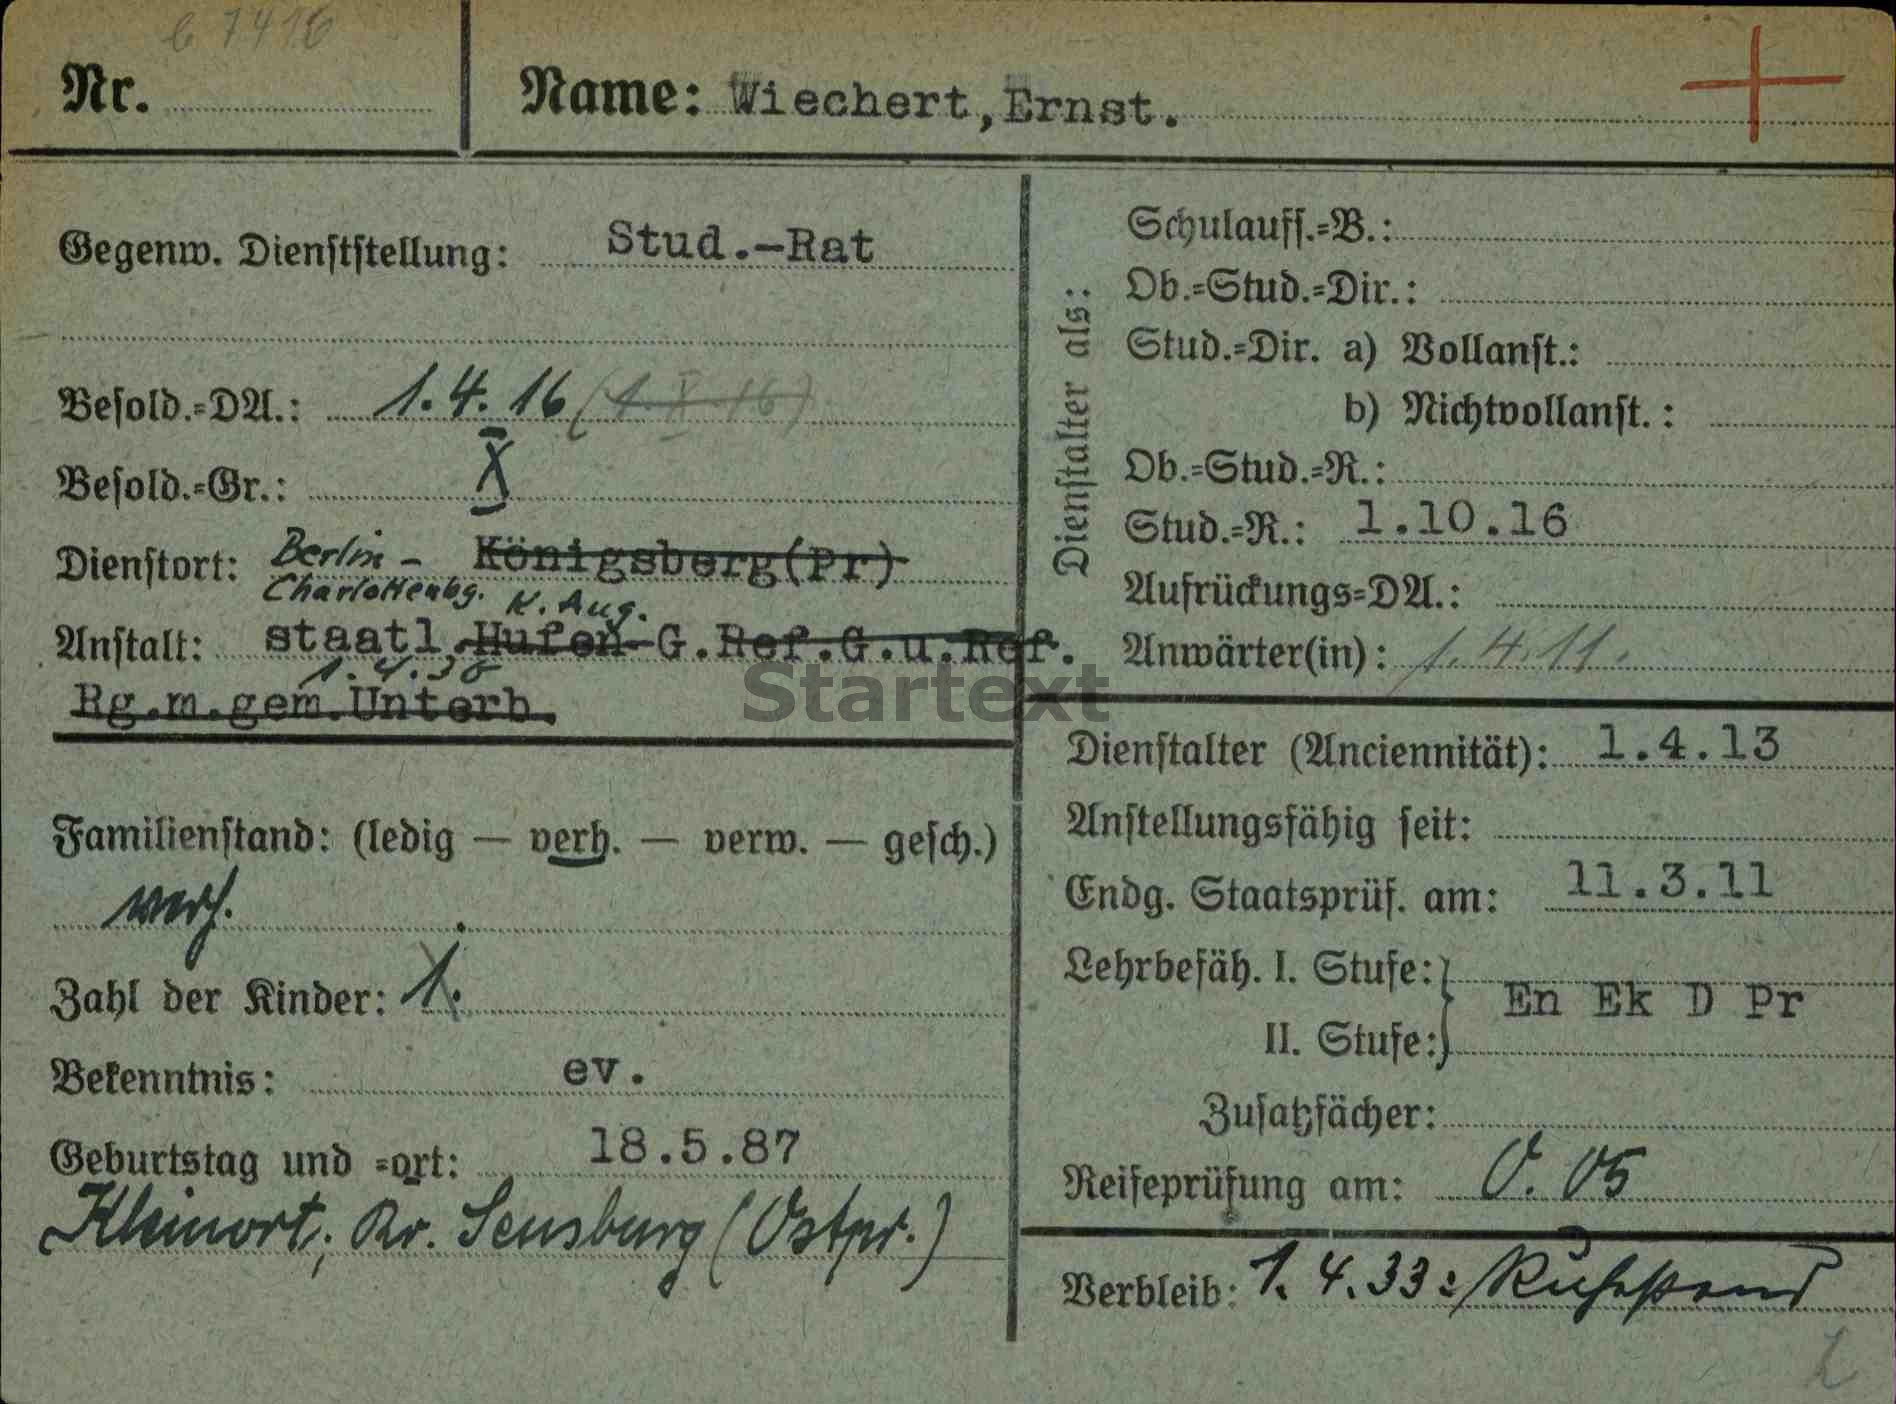 6 7416
Nr.
Name: Wiechert,Ernst.
Gegenw. Dienststellung: Stud.-Rat
Besold.=DA.: 1.4.16 (1.X.16)
Besold.=Gr.: X
Dienstort: Berlin- Königsberg(Pr)
Charlottenbg. K. Aug.
Anstalt: staatl.Hufen-G.Ref.G.u.Ref.
1.4.30
Rg.m.gem.Unterb.
Familienstand: (ledig — verh. — verw. — gesch.)
verh.
Zahl der Kinder: 1.
Bekenntnis: ev.
Geburtstag und =ort: 18.5.87
Kleinort, Kr. Sensburg (Ostpr.)
Dienstalter als:
Schulauff.=B.:
Ob.=Stud.=Dir.:
Stud.=Dir. a) Vollanst.:
b) Nichtvollanst.:
Ob.=Stud.=R.:
Stud.=R.: 1.10.16
Aufrückungs=DA.:
Anwärter(in): 1.4.11.
Startext
Dienstalter (Anciennität): 1.4.13
Anstellungsfähig seit:
Endg. Staatsprüf. am: 11.3.11
Lehrbefäh. I. Stufe:
En Ek D Pr
II. Stufe:
Zusatzfächer:
Reifeprüfung am: O. 05
Verbleib: 1.4.33: Ruhestand